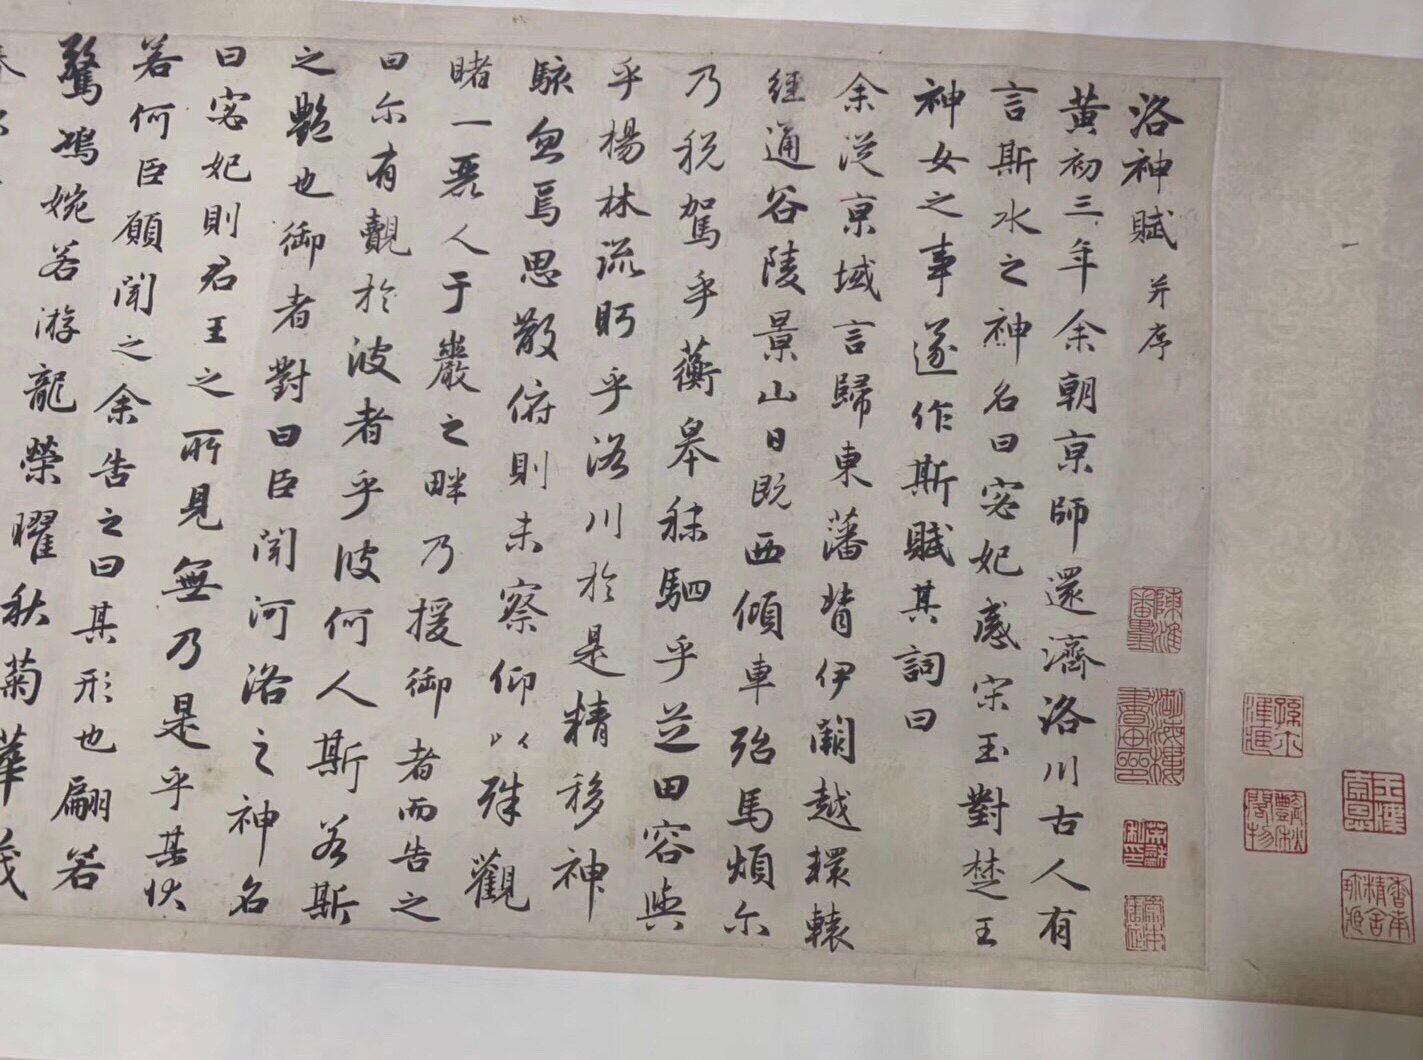 洛神賦 并序
黄初三年余朝京師還濟洛川古人有
言斯水之神名曰宓妃感宋玉對楚王
神女之事遂作斯賦其詞曰
余從京域言歸東藩背伊闕越轘轅
經通谷陵景山日既西傾車殆馬煩尓
乃税駕乎蘅皋秣駟乎芝田容與
乎楊林流眄乎洛川於是精移神
駭忽焉思散俯則未察仰以殊觀
睹一麗人于巖之畔乃援御者而告之
曰尓有覿於彼者乎彼何人斯若斯
之艷也御者對曰臣聞河洛之神名
曰宓妃則君王之所見無乃是乎其狀
若何臣願聞之余告之曰其形也翩若
驚鴻婉若游龍榮曜秋菊華茂
陳淮
書畫